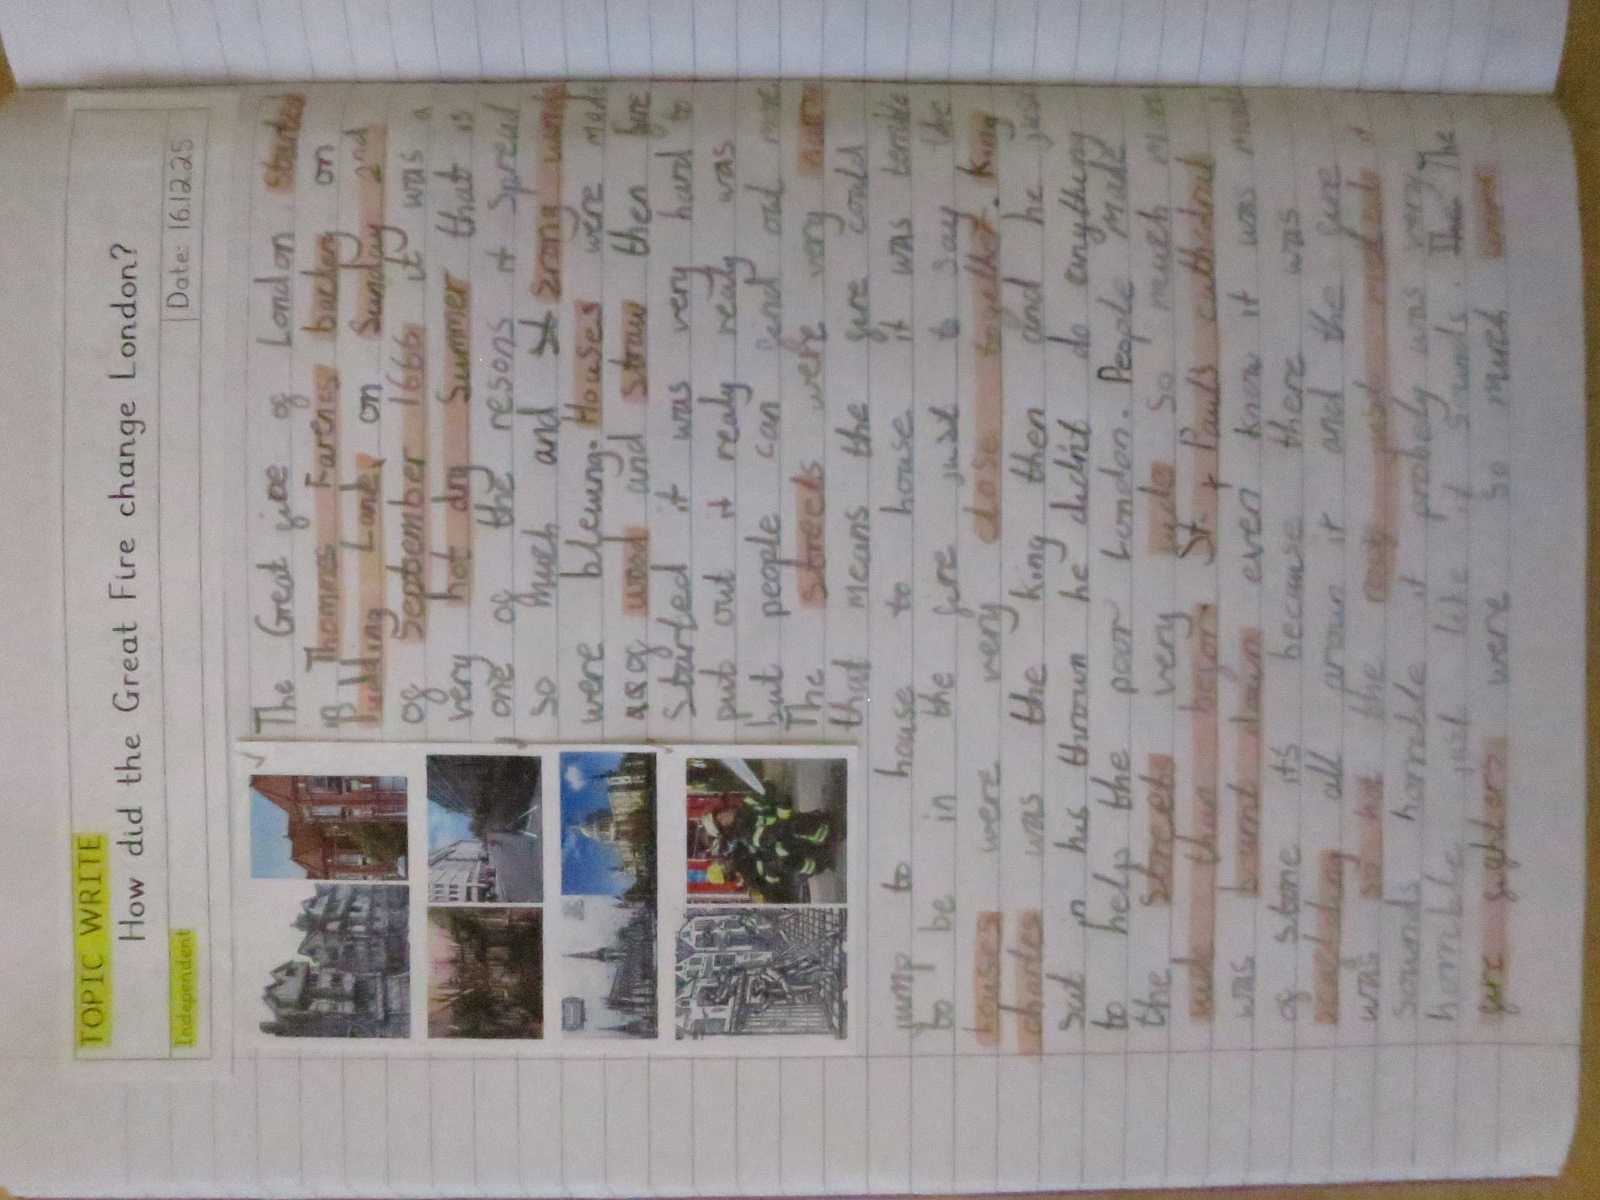 TOPIC WRITE
How did the Great Fire change London?
Independent
Date: 16.12.25
The Great fire of London Started
in Thomas Farens backery on
Pudding Lane on Sunday 2nd
of September 1666 it was a
very hot dry Summer that is
one of the resons it Spread
so much and St Srong winds
were blewing. Houses were made
of wood and straw then fire
Started it was very hard to
put out it realy realy realy was
but people can find out more.
The streets were very
that means the fire could
jump to house to house it was terrible
to be in the fire just to say the
houses were very close together. King
charles was the king then and he just
sat in his thrown he didn't do anything
to help the poor London. People made
the Streets very wyde so much
wide than before. St. Pauls cuthedrak
was burnt down even know it was made
of stone its because there was
all aroun it and the fire
was so hot the
sounds horrible it probely was very
horrible just like it sounds. The The
fire fighters were so much